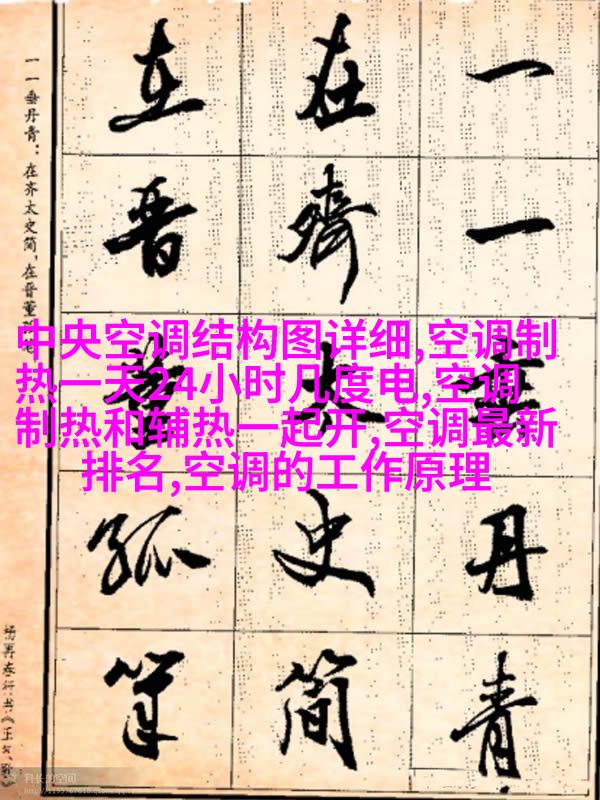 一一垂丹青
在齊太史简
在晋董狐笔
一一垂丹青：在齐太史简，在晋董
杨再春行书《正气
中央空调结构图详细,空调制
热一天24小时几度电,空调
制热和辅热一起开,空调最新
排名,空调的工作原理
科长的空间